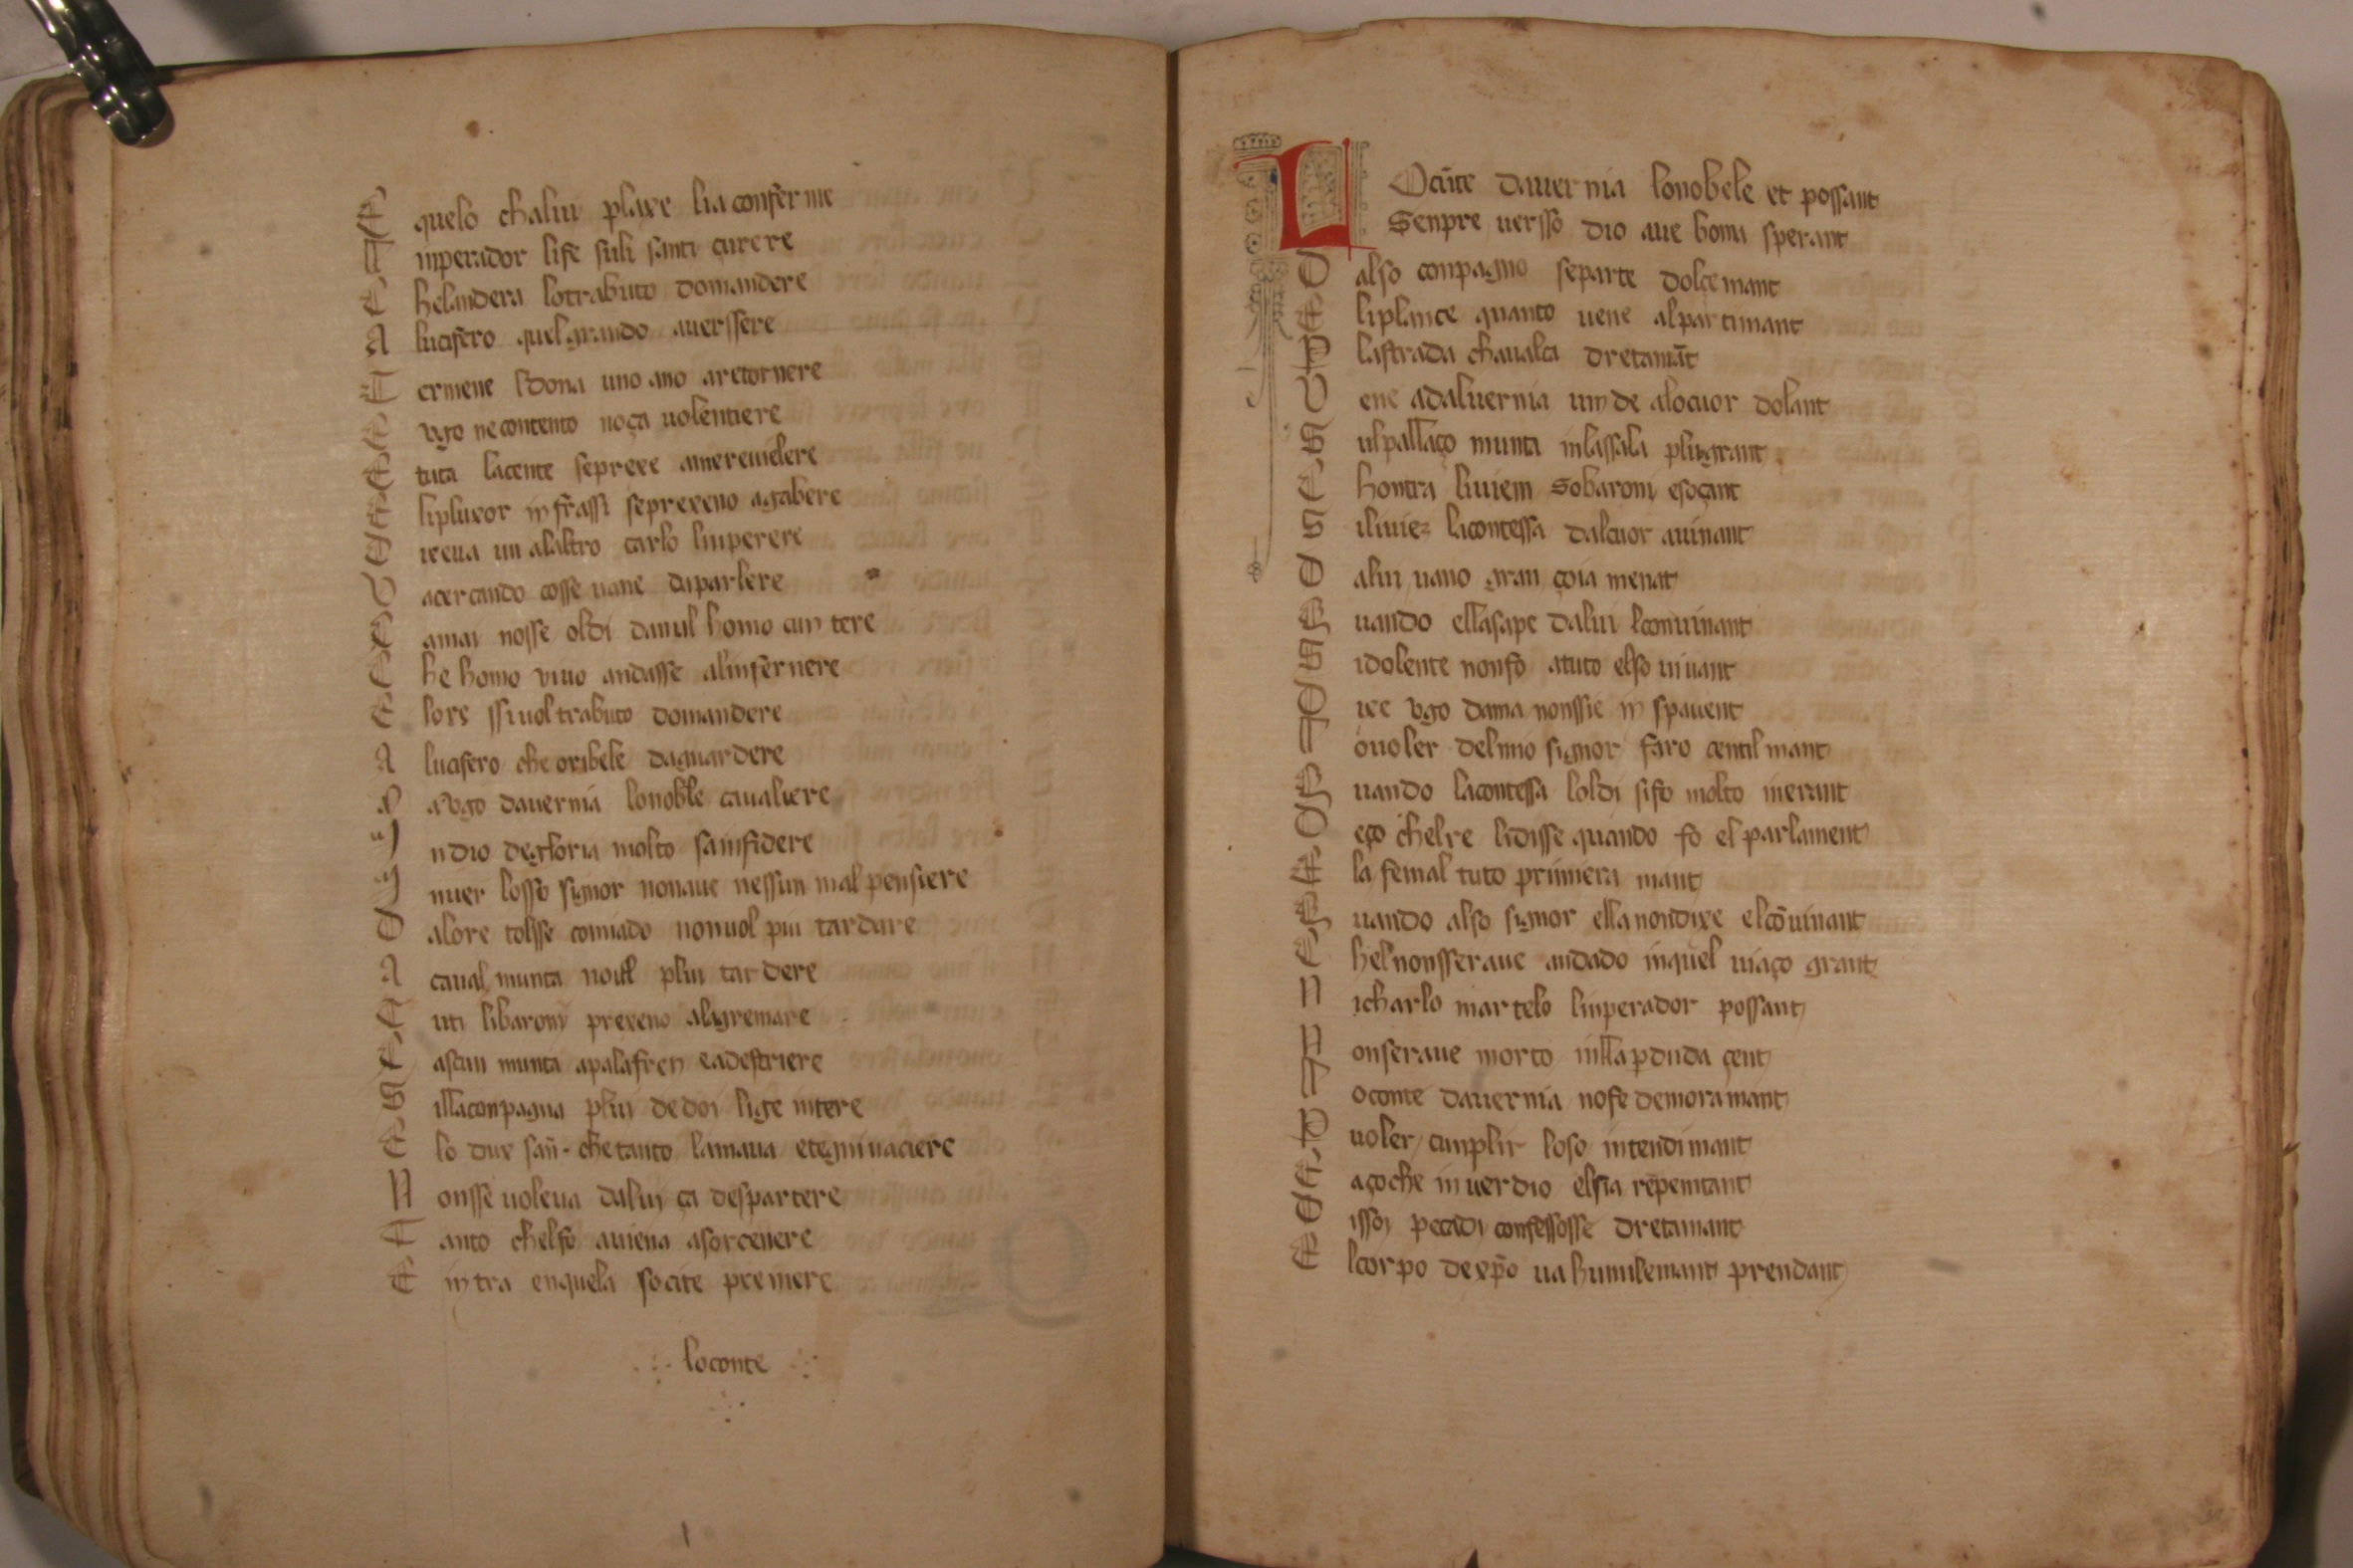 E quelo chalui plaxe lia conferme
L inperador life suli santi çurere
C helandera lotrabuto domandere
A lucifero quel grando auerssere
T ermene idona uno ano aretornere
E vgo ne contento noça uolentiere
E tuta lacente seprexe amereuielere
E liplusor in frassiseprexeno agabere
D iceua un alaltro carlo linperere
V acercando cosse uane daparlere
C amai nosse oldi danul homo cun tere
C he homo viuo andasse alinfernere
E lore ssiuol trabuto domandere
A lucifero che oribele daguardere
M a vgo dauernia lonobele caualiere
I n dio degloria molto sainfidere
I nuer losso signor nonaue nessun mal pensiere
D alore tolsse comiado nonuol piu tardare
A caual munta nouol plui tardere
T uti libaroni prexeno alagremare
C ascun munta apalafren eadestriere
S illaconpagna plui dedoi lige intere
E lo dux sañ· che tanto lamaua etegniuaciere
N onsse uoleua dalui ça despartere
T anto chelfo auiena asorcenere
E intra enquela socite premere
loconte
L Oco̅te dauernia lonobele et possant
Senpre uersso dio aue bona sperant
D also conpagno separte dolçemant
E liplance quanto uene alpartimant
P lastrada chaualca dretama̅t
V ene adaluernia un de alocuor dolant
S ulpallaço munta inlassala plugrant
C hontra liuiem sobaroni esoçant
S iliuiez lacontessa dalcuor auinant
D alui uano gran çoia menat
Q uando ellasape dalui lconuinant
S idolente nonfo atuto elso uiuant
D ice vgo dama nonssie in spauent
L ouoler delmio signor faro centilmant
Q uando lacontessa loldi sifo molto inerant
D eço chelre lidisse quando fo el parlament
E la femal tuto primiera mant
Q uando also signor ella nondixe elco̅uinant
C helnonsseraue andado inquel uiaço grant
N icharlo martelo linperador possant
N onseraue morto nilla p̱duda çent
L oconte dauernia nofe demoramant
P uoler cunplir loso intendimant
E açoche inuerdio elsia repentant
D issoi pecadi confessosse dretamant
E lcorpo dexp̅o ua humilemant prendant